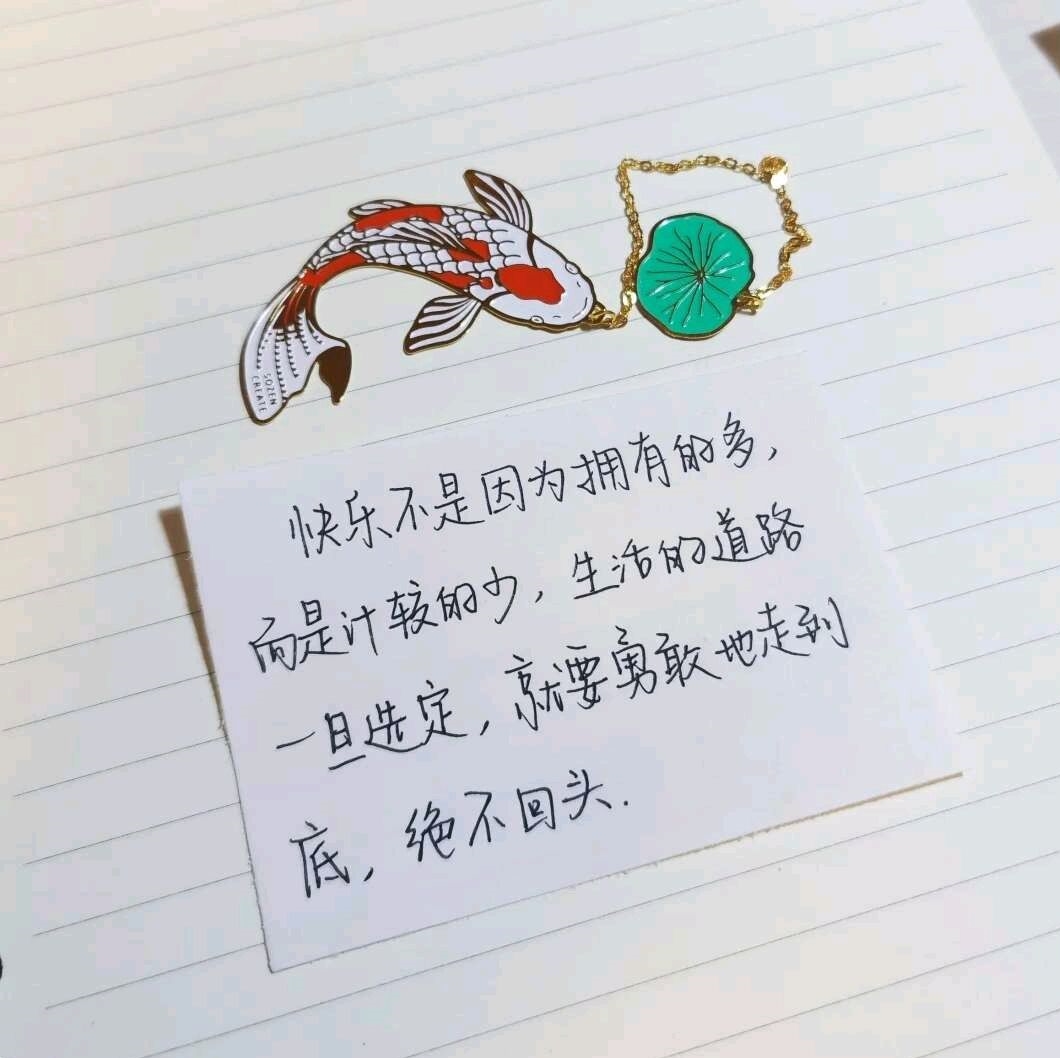 SOZEN
CREATE
快乐不是因为拥有的多,
而是计较的少,生活的道路
一旦选定,就要勇敢地走到
底,绝不回头.